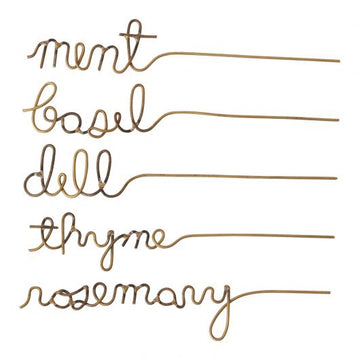 ment
basil
dill
thyme
rosemary